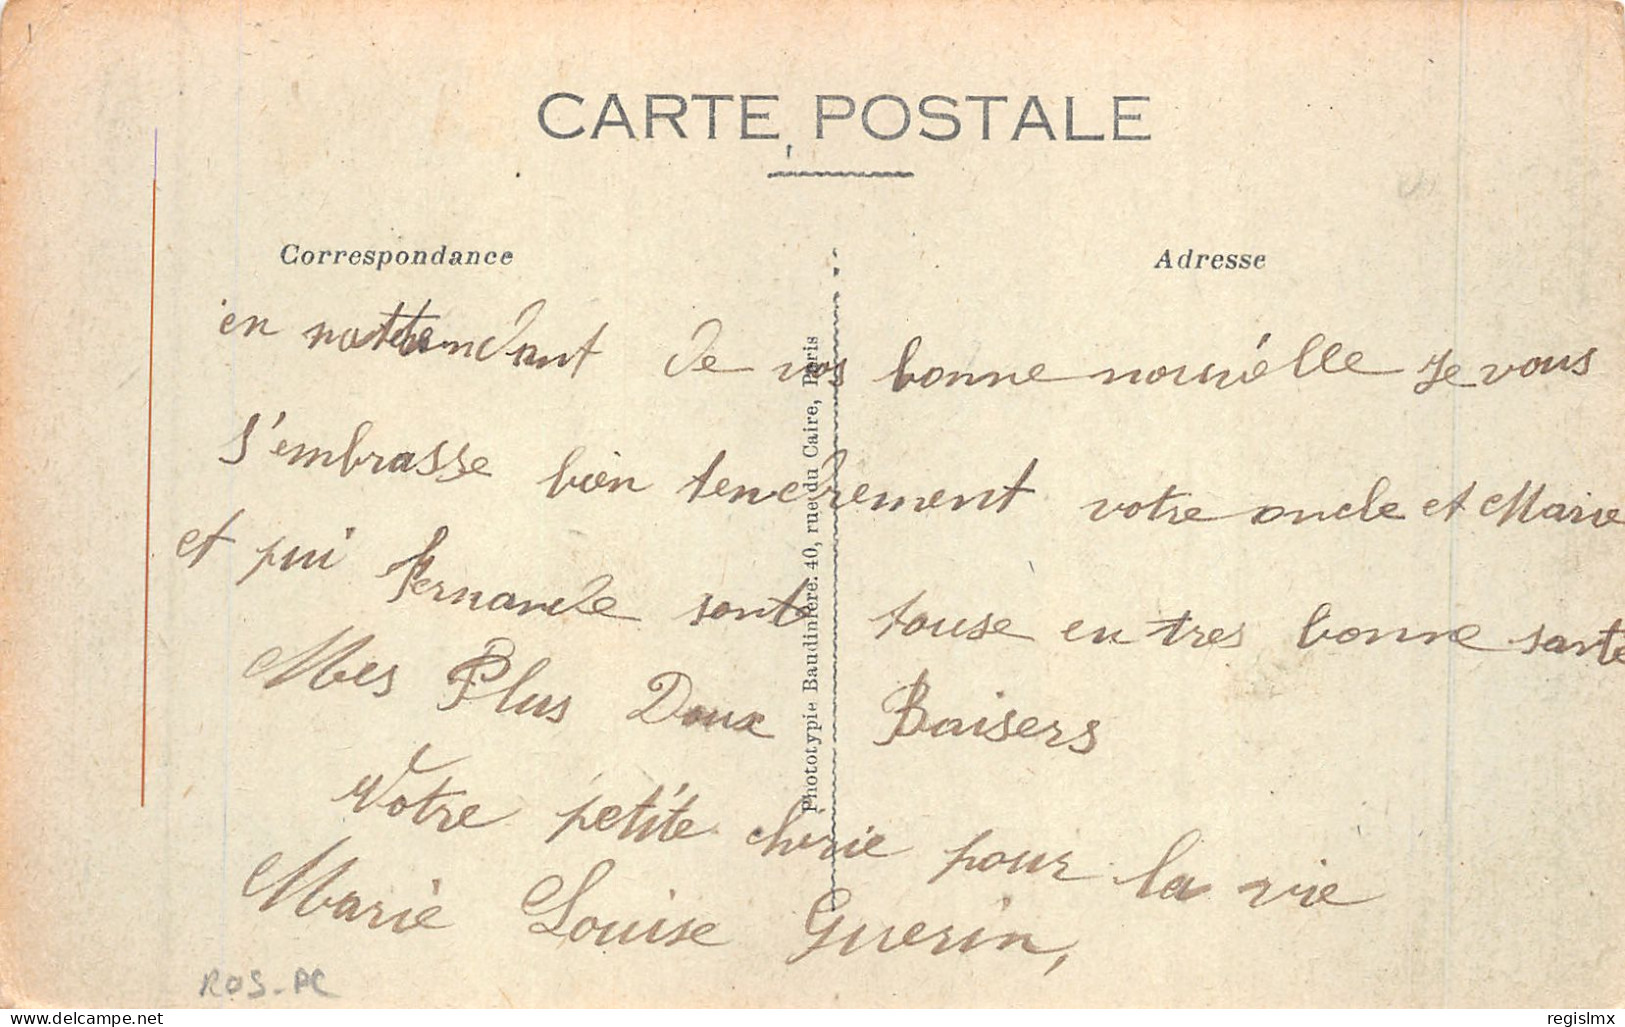 CARTE POSTALE
Correspondance
Adresse
en nattendant de vos bonne nouvélle je vous
s'embrasse bien tendrement votre oncle et Marie
et pui Fernande sont touse en tres bonne santé
Mes Plus Doux Baisers
Votre petite chérie pour la vie
Marie Louise Guerin,
Phototypie Baudinière. 40, rue du Caire, Paris
ROS-PC
delcampe.net
regislmx